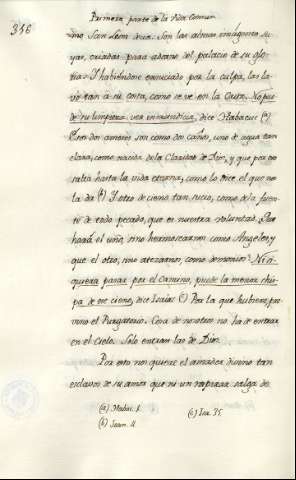 356
Primera parte de la Vida Comun
dimo San Leon Son las almas imagenes su
yas, criadas para adorno del palacio de su glo
ria. Y habiendose por la culpa, las la
tan a su costa, como se ve en la Cruz. No pue
de su limpieza ver inmundicia, dice Habacuc (a)
Estos dos amores son como dos caños, uno de agua tan
clara, como nacida de la Claridad de Dios, y que por eso
salta hasta la vida eterna, como lo dice el que no
la da (b) Y otro de cieno tan sucio, como de la fuen
te de todo pecado, que es nuestra voluntad. Por
el uno, nos hermoseamos como Angeles, y
que el otro, nos afeamos, como demonios. Ni si
quiera pasar por el camino, puede la menor chis
pa de ese cieno, dice Isaias (c) Por la que hubiere, pre
vino el Purgatorio. Cosa de nosotros no ha de entrar
en el cielo. Solo entran las de Dios.
Por esto nos quiere el amador divino tan
esclavos de su amor que ni un salga de
(a) Habac. 1.
(b) Joan. 4.
(c) Isa. 35.